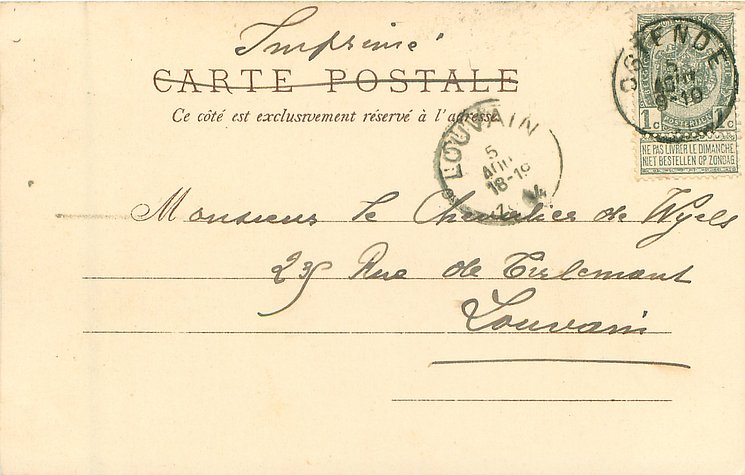 Imprimé
CARTE POSTALE
Ce côté est exclusivement réservé à l'adresse.
OSTENDE
5
AOUT
9-10
1c 1c
POSTERIJEN
NE PAS LIVRER LE DIMANCHE
NIET BESTELLEN OP ZONDAG
LOUVAIN
5
AOU
18-19
Monsieur le Chevalier de Wyels
Rue de Tirlemont
Louvain